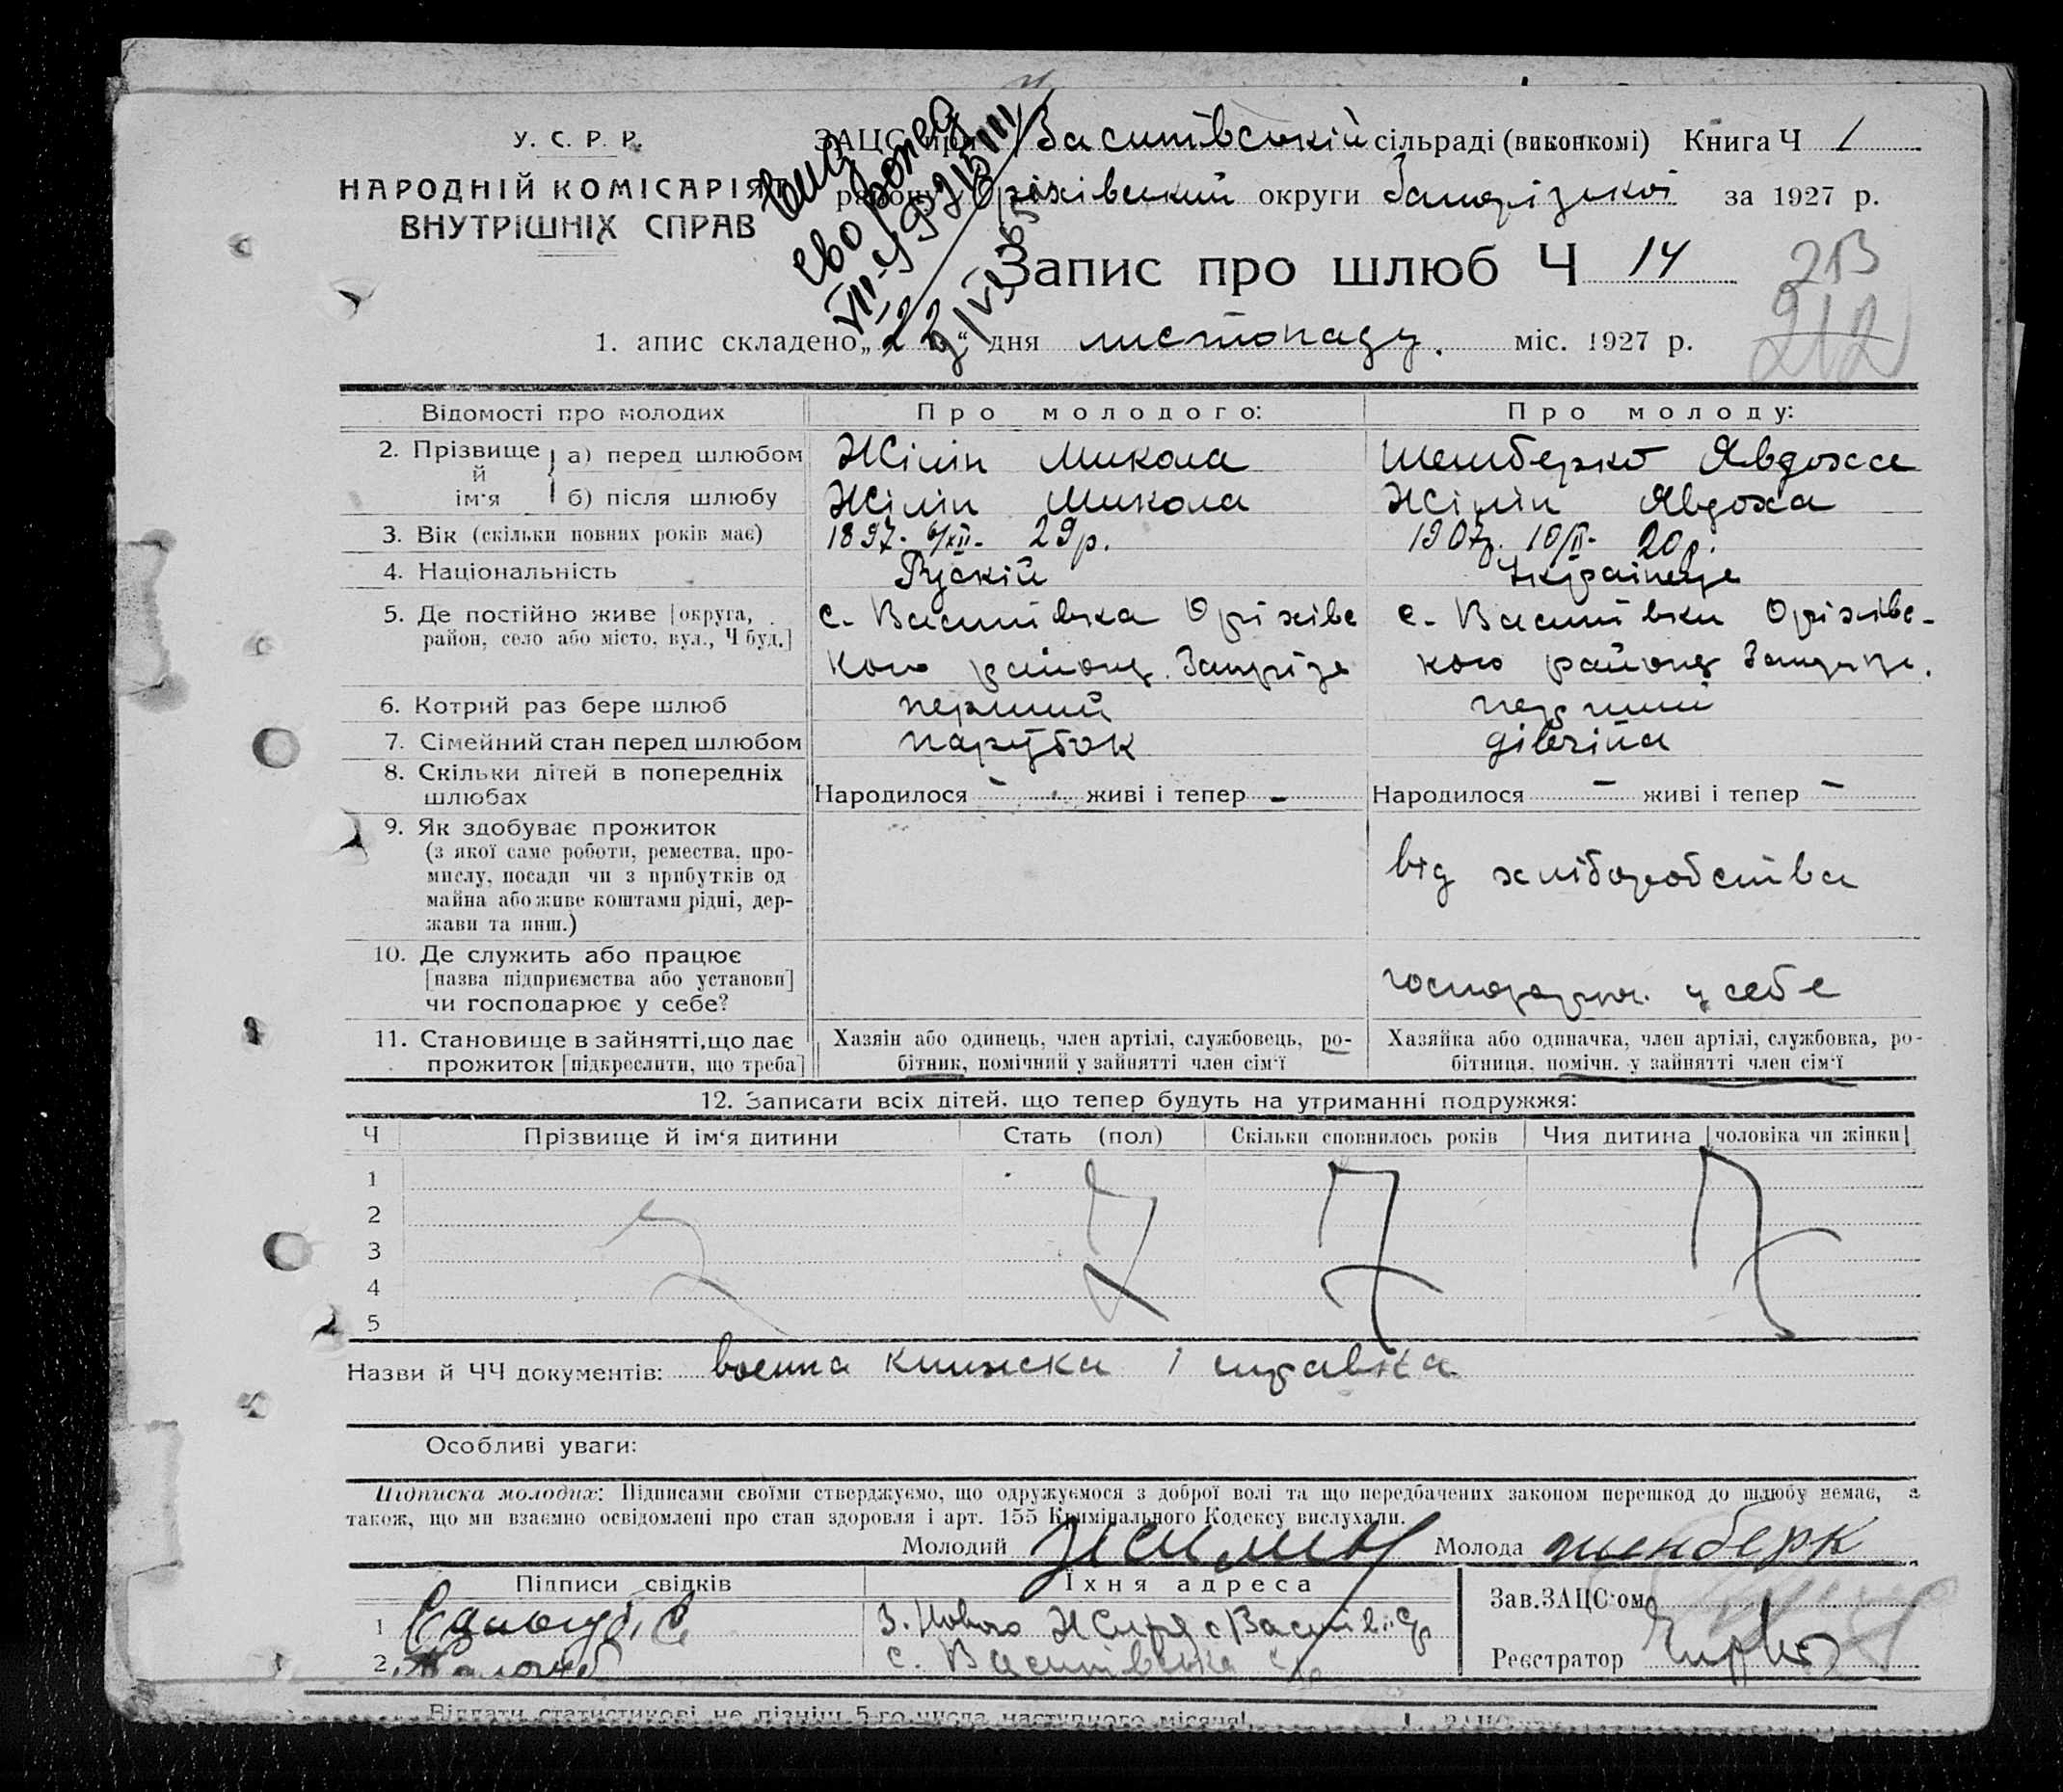 У. С. Р. Р.
НАРОДНІЙ КОМІСАРІЯТ
ВНУТРІШНІХ СПРАВ
ЗАЦС при Васитівській сільраді (виконкомі) Книга Ч 1
району Оріхівський округи Запорізької за 1927 р.
Запис про шлюб Ч 14
213
212
1. апис складено „22“ дня листопаду. міс. 1927 р.
Відомості про молодих
Про молодого:
Про молоду:
2. Прізвище й ім'я
а) перед шлюбом
Жілін Микола
Явдоха
б) після шлюбу
Жілін Микола
Жілін Явдоха
3. Вік (скільки повних років має)
1897. 6/XII - 29 р.
1907р. 10/II - 20 р.
4. Національність
Рускій
Українця
5. Де постійно живе [округа,
район, село або місто, вул., Ч буд.]
с. Васитівка Оріхівс
кого району. Запоріз
с. Васитівки Оріхівс-
кого району
6. Котрий раз бере шлюб
перший
перший
7. Сімейний стан перед шлюбом
парубок
дівчина
8. Скільки дітей в попередніх
шлюбах
Народилося - живі і тепер -
Народилося - живі і тепер -
9. Як здобуває прожиток
(з якої саме роботи, ремества, про-
мислу, посади чи з прибутків од
майна або живе коштами рідні, дер-
жави та инш.)
від хліборобства
10. Де служить або працює
[назва підприємства або установи]
чи господарює у себе?
у себе
11. Становище в зайнятті, що дає
прожиток [підкреслити, що треба]
Хазяїн або одинець, член артілі, службовець, ро-
бітник, помічний у зайнятті член сім'ї
Хазяйка або одиначка, член артілі, службовка, ро-
бітниця, помічн. у зайнятті член сім'ї
12. Записати всіх дітей, що тепер будуть на утриманні подружжя:
Ч
Прізвище й ім'я дитини
Стать (пол)
Скільки сповнилось років
Чия дитина [чоловіка чи жінки]
1
2
3
4
5
Назви й ЧЧ документів: воєнна книжка і справка
Особливі уваги:
Підписка молодих: Підписами своїми стверджуємо, що одружуємося з доброї волі та що передбачених законом перешкод до шлюбу немає, а
також, що ми взаємно освідомлені про стан здоровля і арт. 155 Кримінального Кодексу вислухали.
Молодий Жилин Молода
Підписи свідків
Їхня адреса
1
2.
с. Васитівка
Зав. ЗАЦС'ом
Реєстратор
Віддати статистикові не пізніш 5-го числа наступного місяця!